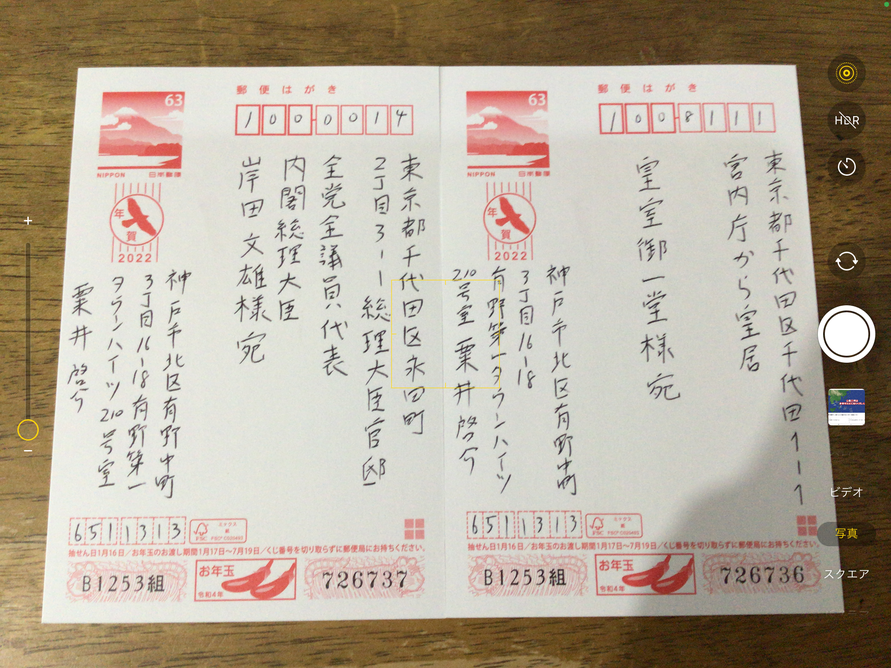 63
NIPPON
日本郵便
郵便はがき
100-0014
東京都千代田区永田町
2丁目3ー1 総理大臣官邸
全党全議員代表
内閣総理大臣
岸田文雄様宛
年賀
2022
神戸市北区有野中町
3丁目16-18有野第一
タウンハイツ210号室
粟井啓介
6511313
ミックス
紙
FSC
抽せん日1月16日/お年玉のお渡し期間1月17日~7月19日/くじ番号を切り取らずに郵便局にお持ちください。
B1253組
お年玉
令和4年
726737
63
NIPPON
日本郵便
郵便はがき
100-8111
東京都千代田区千代田1ー1
宮内庁から皇居
皇室御一堂様宛
年賀
2022
神戸市北区有野中町
3丁目16-18
有野第一タウンハイツ
210号室 粟井啓介
6511313
ミックス
紙
FSC
抽せん日1月16日/お年玉のお渡し期間1月17日~7月19日/くじ番号を切り取らずに郵便局にお持ちください。
B1253組
お年玉
令和4年
726736
HDR
ビデオ
写真
スクエア